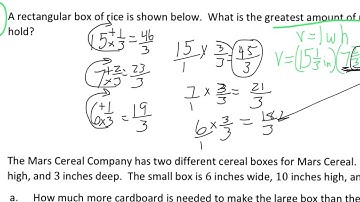 A rectangular box of rice is shown below. What is the greatest amount of
hold?
15 +1/×3 = 46/3
7 +2/×3 = 23/3
6 +1/×3 = 19/3
15/1 × 3/3 = 45/3
7/1 × 3/3 = 21/3
6/1 × 3/3 =
V = l w h
V = (15 1/3 in)
The Mars Cereal Company has two different cereal boxes for Mars Cereal.
high, and 3 inches deep. The small box is 6 inches wide, 10 inches high, an
a. How much more cardboard is needed to make the large box than the